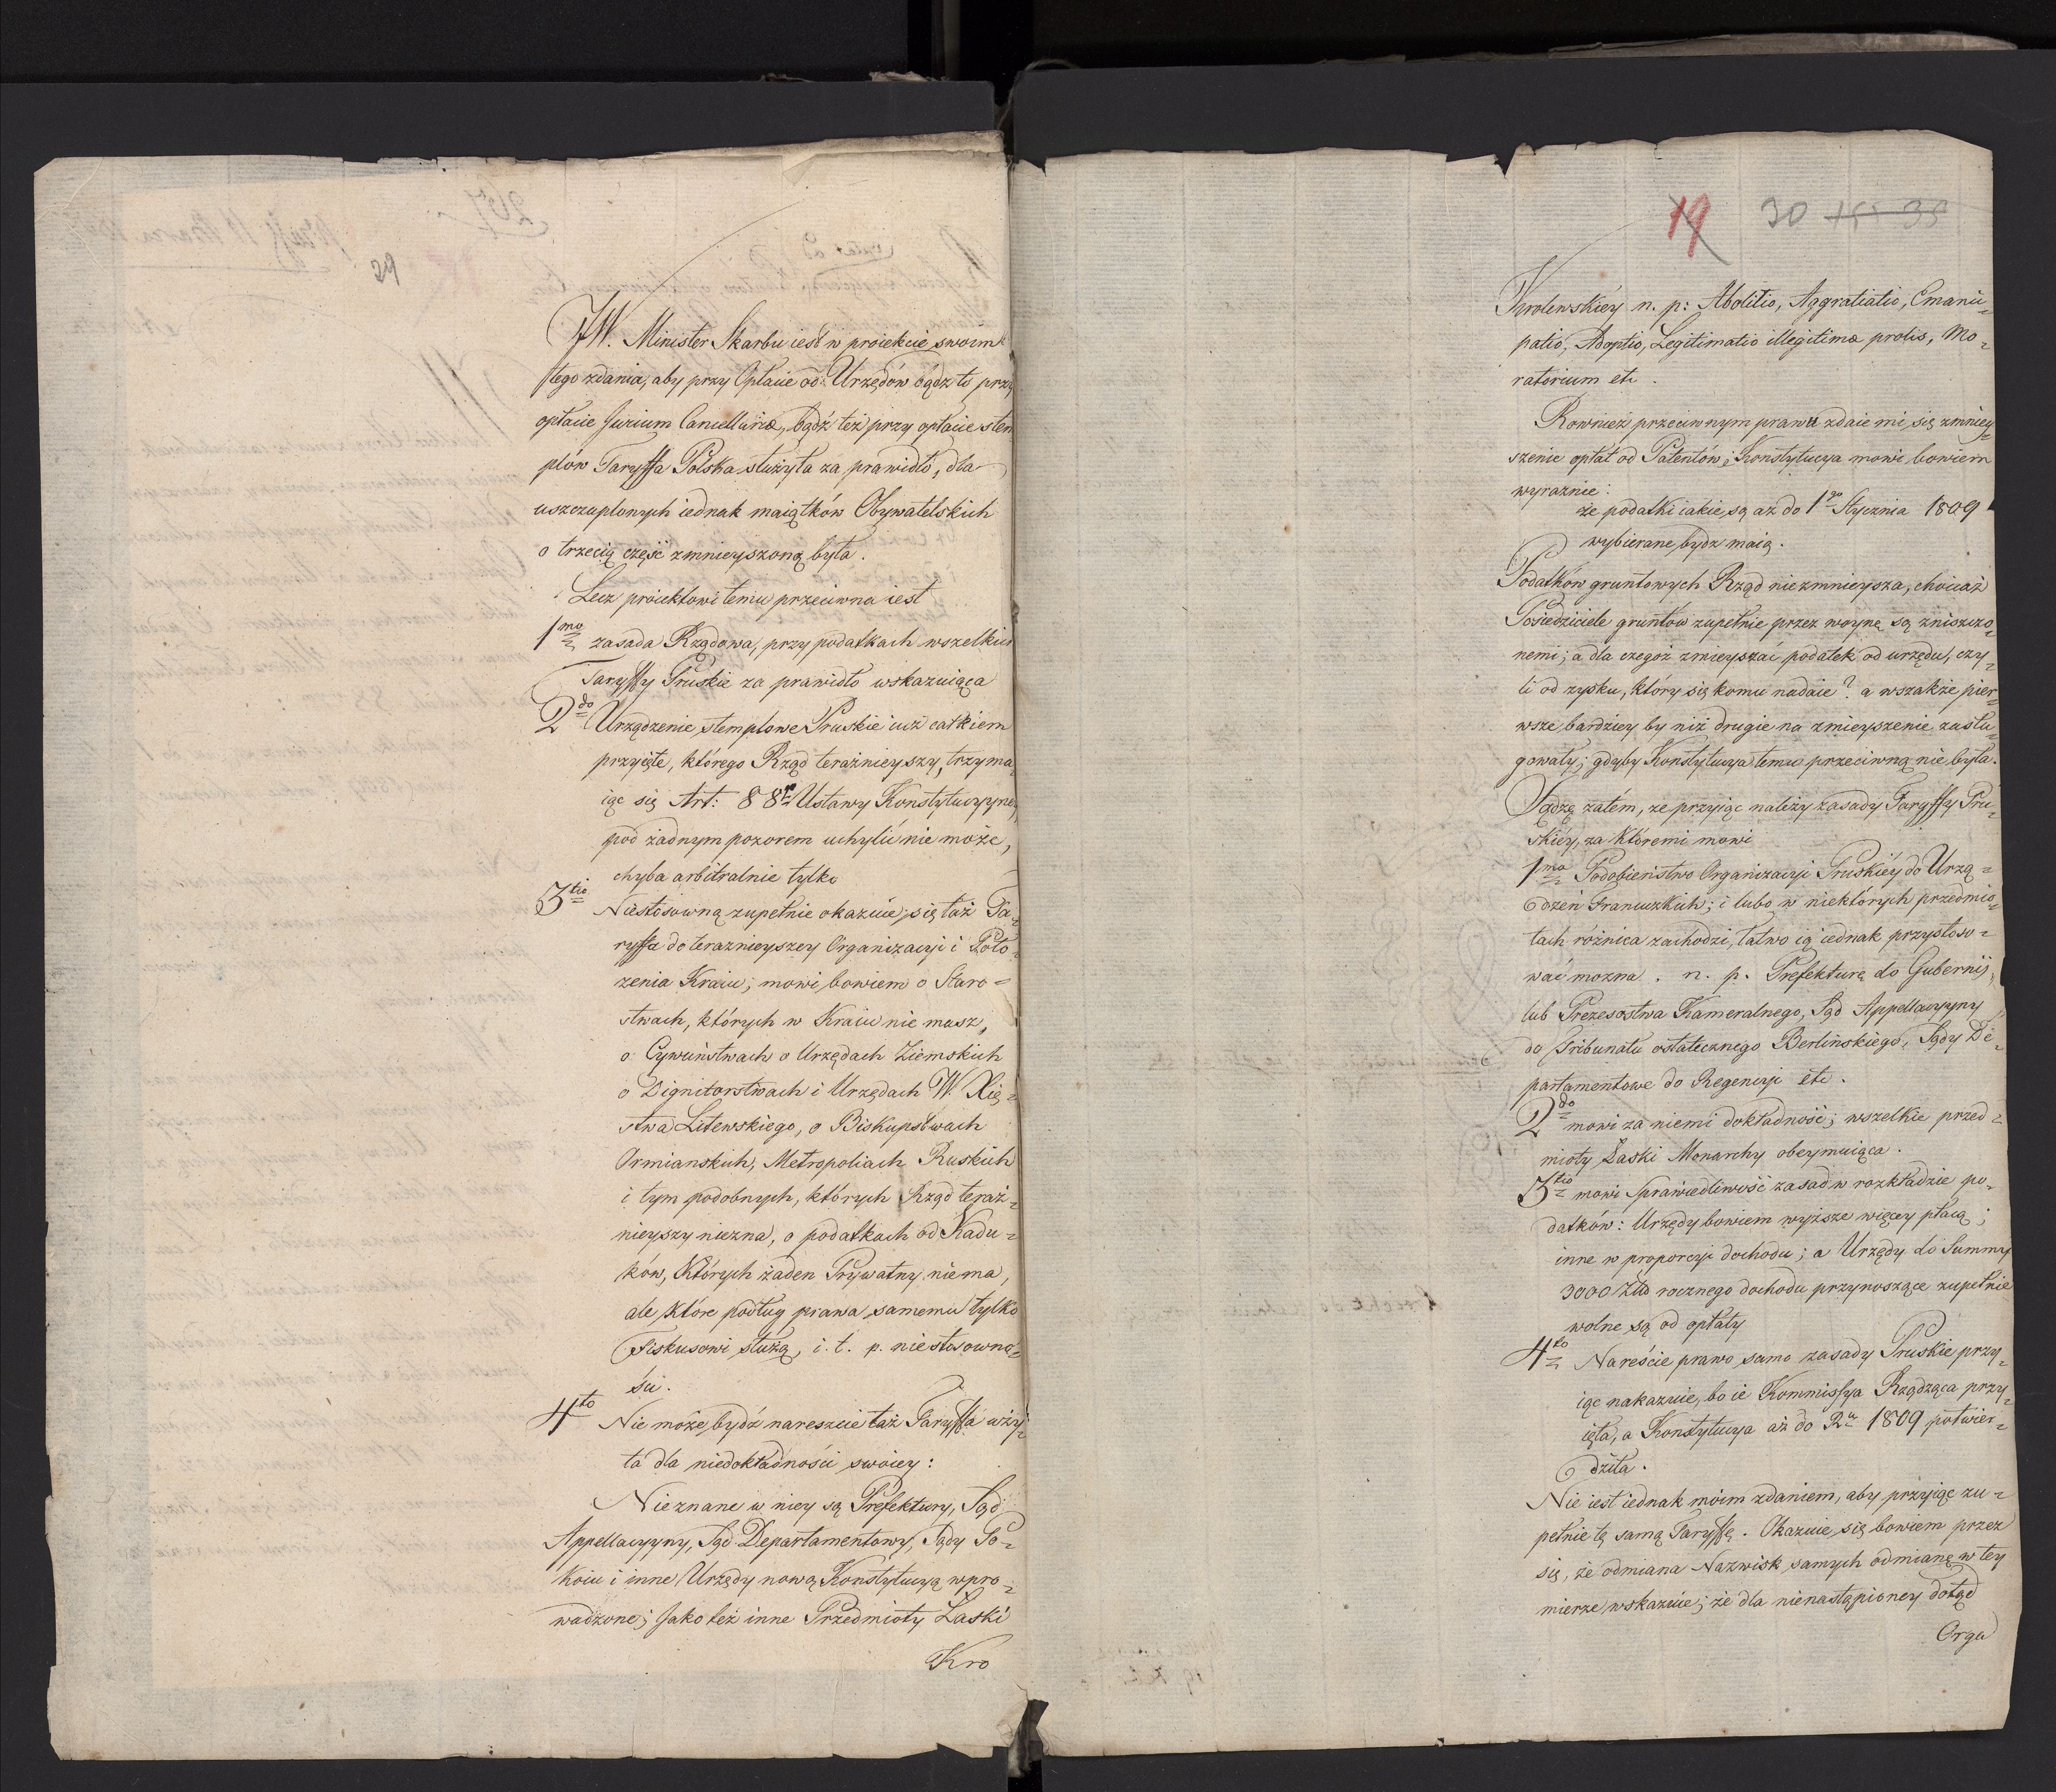 29
JW. Minister Skarbu iest w proiekcie swoim
tego zdania, aby przy Opłacie od Urzędów bądz to przy
opłacie Jurium Cancellariæ, bądź też przy opłacie stem
plów Taryffa Polska służyła za prawidło, dla
uszczuplonych iednak maiątków Obywatelskich
o trzecią część zmnieyszoną była.
Lecz proiektowi temu przeciwna iest
1mo zasada Rządowa, przy podatkach wszelkich
Taryffy Pruskie za prawidło wskazuiąca
2do Urządzenie stemplowe Pruskie iuż całkiem
przyięte, którego Rząd teraźnieyszy, trzyma
iąc się Art: 88 Ustawy Konstytucyyney,
pod żadnym pozorem uchylić nie może,
chyba arbitralnie tylko
3tio Niestosowną zupełnie okazuie się taż Ta
ryffa do teraznieyszey Organizacyi i Poło
zenia Kraiu; mowi bowiem o Staro=
stwach, których w Kraiu nie masz,
o Cywuństwach o Urzędach Ziemskich
o Dignitorstwach i Urzędach W. Xię=
stwa Litewskiego, o Biskupstwach
Ormianskich, Metropoliach Ruskich
i tym podobnych, których Rząd teraź=
nieyszy niezna, o podatkach od Kadu=
ków, Których żaden Prywatny niema,
ale które podług prawa samemu tylko
Fiskusowi służą, i. t. p. niestosowno=
ści.
4to Nie może bydź nareszcie taż Taryffa uży=
ta dla niedokładności swoiey:
Nieznane w niey są Prefektury, Sąd
Appellacyyny, Sąd Departamentowy, Sądy Po=
koiu i inne Urzędy nową Konstytucyą wpro=
wadzone; Jako też inne Przedmioty Łaski
Kro
19 30
Krolewskiéy n. p: Abolitio, Aggratiatio, Emanci=
patio, Adoptio, Legitimatio illegitimæ prolis, Mo=
ratorium etc.
Rownież przeciwnym prawu zdaie mi się zmniey=
szenie opłat od Patentów; Konstytucya mowi bowiem
wyraznie:
że podatki iakie są aż do 1go Stycznia 1809
wybierane bydz maią.
Podatków gruntowych Rząd niezmnieysza, chociaż
Posiedziciele gruntow zupełnie przez woynę są zniszczo=
nemi; a dla czegóż zmieyszać podatek od urzędu, czy=
li od zysku, który się komu nadaie? a wszakże pier=
wsze bardziey by niż drugie na zmieyszenie zasłu=
gowały; gdyby Konstytucya temu przeciwną nie była.
Sądzę zatém, ze przyiąc należy zasady Taryffy Pru=
skiéy, za któremi mowi
1mo Podobieństwo Organizacyi Pruskiéy do Urzą=
dzeń Francuzkich; i lubo w niektórych przedmio=
tach różnica zachodzi, łatwo ią iednak przystoso=
wać mozna. n. p. Prefekturę do Gubernij,
lub Prezesostwa Kameralnego, Sąd Appellacyyny
do Tribunału ostatecznego Berlinskiego, Sądy De=
partamentowe do Regencyi etc.
2do mowi za niemi dokładność; wszelkie przed=
mioty Łaski Monarchy obeymuiąca.
3tio mowi Sprawiedliwość zasad w rozkładzie po=
datków: Urzędy bowiem wyższe więcey płacą;
inne w proporcyi dochodu; a Urzędy do Summy
3000 Złtd rocznego dochodu przynoszące zupełnie
wolne są od opłaty
4to Nareście prawo samo zasady Pruskie przy=
iąc nakazuie, bo ie Kommissya Rządząca przy=
ięła, a Konstytucya aż do Ru 1809 potwier=
dziła.
Nie iest iednak moim zdaniem, aby przyiąc zu=
pełnie tę samą Taryffę. Okazuie się bowiem przez
się, że odmiana Nazwisk samych odmianę w tey
mierze wskazuie; że dla nienastąpioney dotąd
Orga